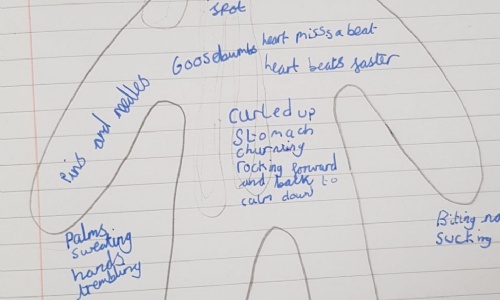 spot
Goosebumbs
heart misss a beat
heart beats faster
Pins and needles
Curled up
Stomach
churning
rocking forward
and back to
calm down
Palms
sweating
hands
trembling
Biting
sucking